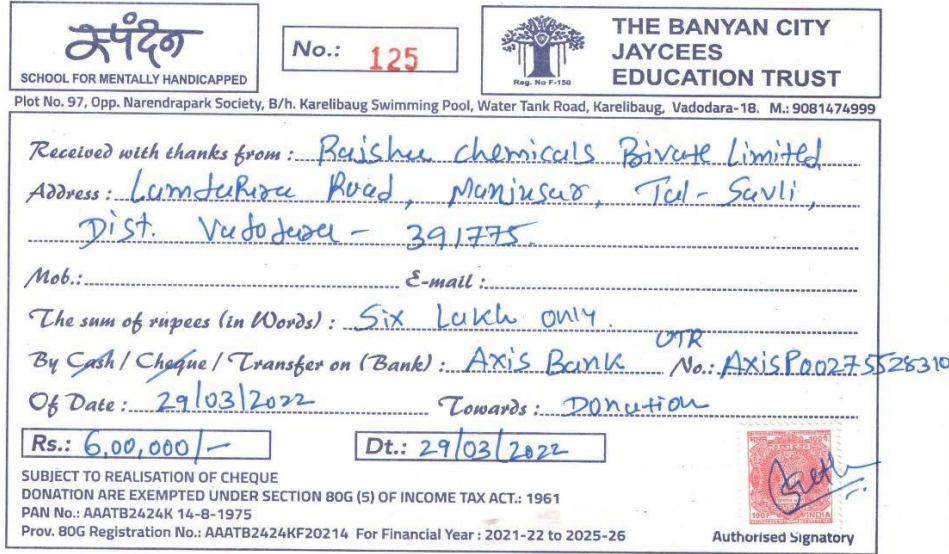 સ્પંદન
SCHOOL FOR MENTALLY HANDICAPPED
No.: 125
Reg. No F-150
THE BANYAN CITY
JAYCEES
EDUCATION TRUST
Plot No. 97, Opp. Narendrapark Society, B/h. Karelibaug Swimming Pool, Water Tank Road, Karelibaug, Vadodara-18. M.: 9081474999
Received with thanks from : chemicals Limited
Address : Road, Manjusar, Tal - Savli,
Dist. Vadodara - 391775.
Mob.: E-mail :
The sum of rupees (in Words) : Six Lakh only.
By Cash / Cheque / Transfer on (Bank) : Axis Bank UTR No.: AxisP00275528310
Of Date : 29/03/2022 Towards : Donation
Rs.: 6,00,000/- Dt.: 29/03/2022
SUBJECT TO REALISATION OF CHEQUE
DONATION ARE EXEMPTED UNDER SECTION 80G (5) OF INCOME TAX ACT.: 1961
PAN No.: AAATB2424K 14-8-1975
Prov. 80G Registration No.: AAATB2424KF20214 For Financial Year : 2021-22 to 2025-26
INDIA
Authorised Signatory